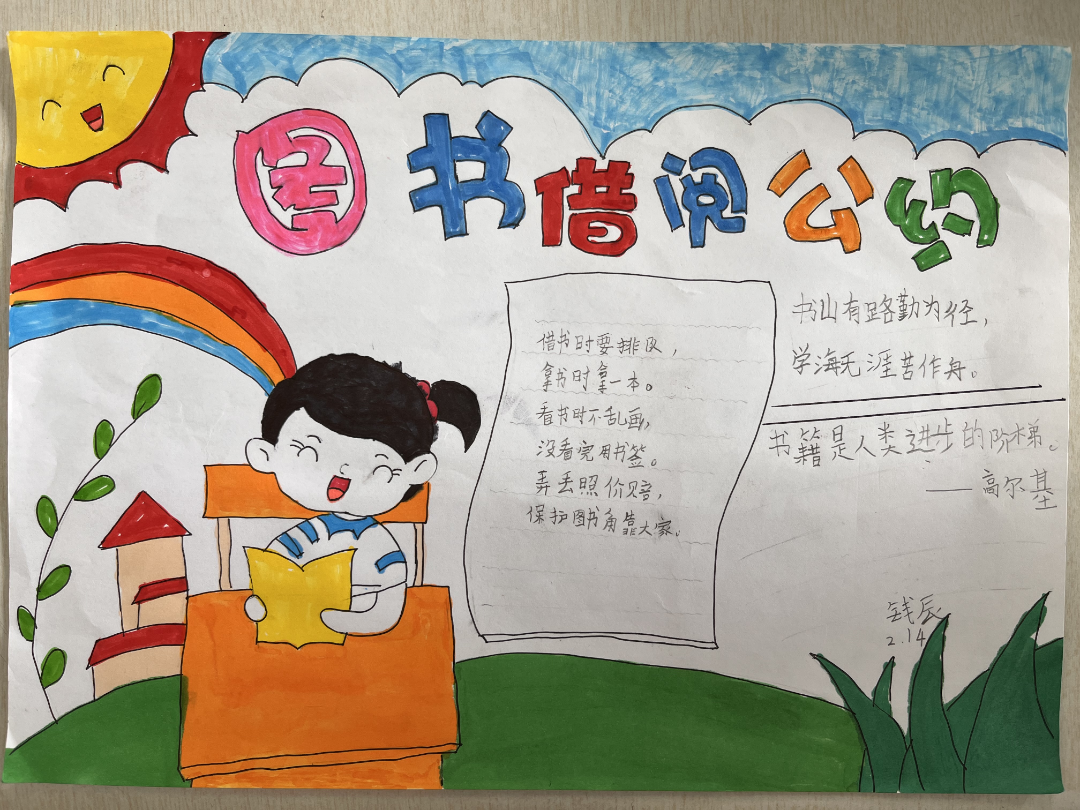 图书借阅公约
借书时要排队，
拿书时拿一本。
看书时不乱画，
没看完用书签。
弄丢照价赔，
保护图书角靠大家。
书山有路勤为径，
学海无涯苦作舟。
书籍是人类进步的阶梯。
——高尔基
钱辰
2.14